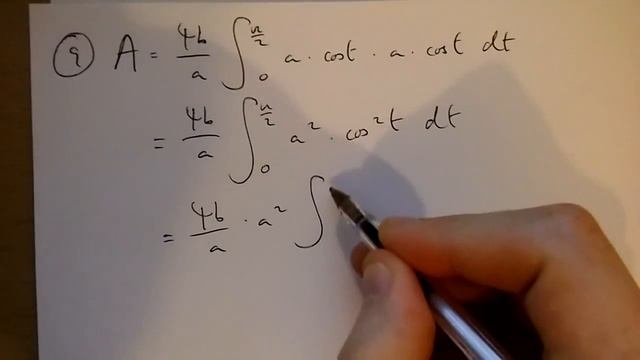 9 A = 4b/a ∫₀^(π/2) a · cost · a · cost dt
= 4b/a ∫₀^(π/2) a² · cos²t dt
= 4b/a · a² ∫